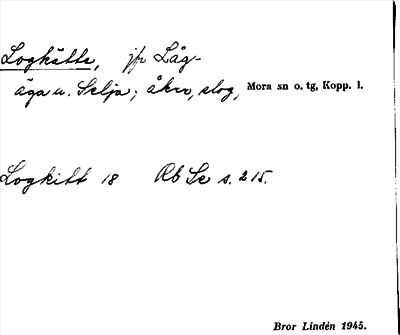 Loghätte, jfr Låg-
äga u. Selja; åker, slog, Mora sn o. tg, Kopp. l.
Logkitt 18 Rb Se s. 215.
Bror Lindén 1945.